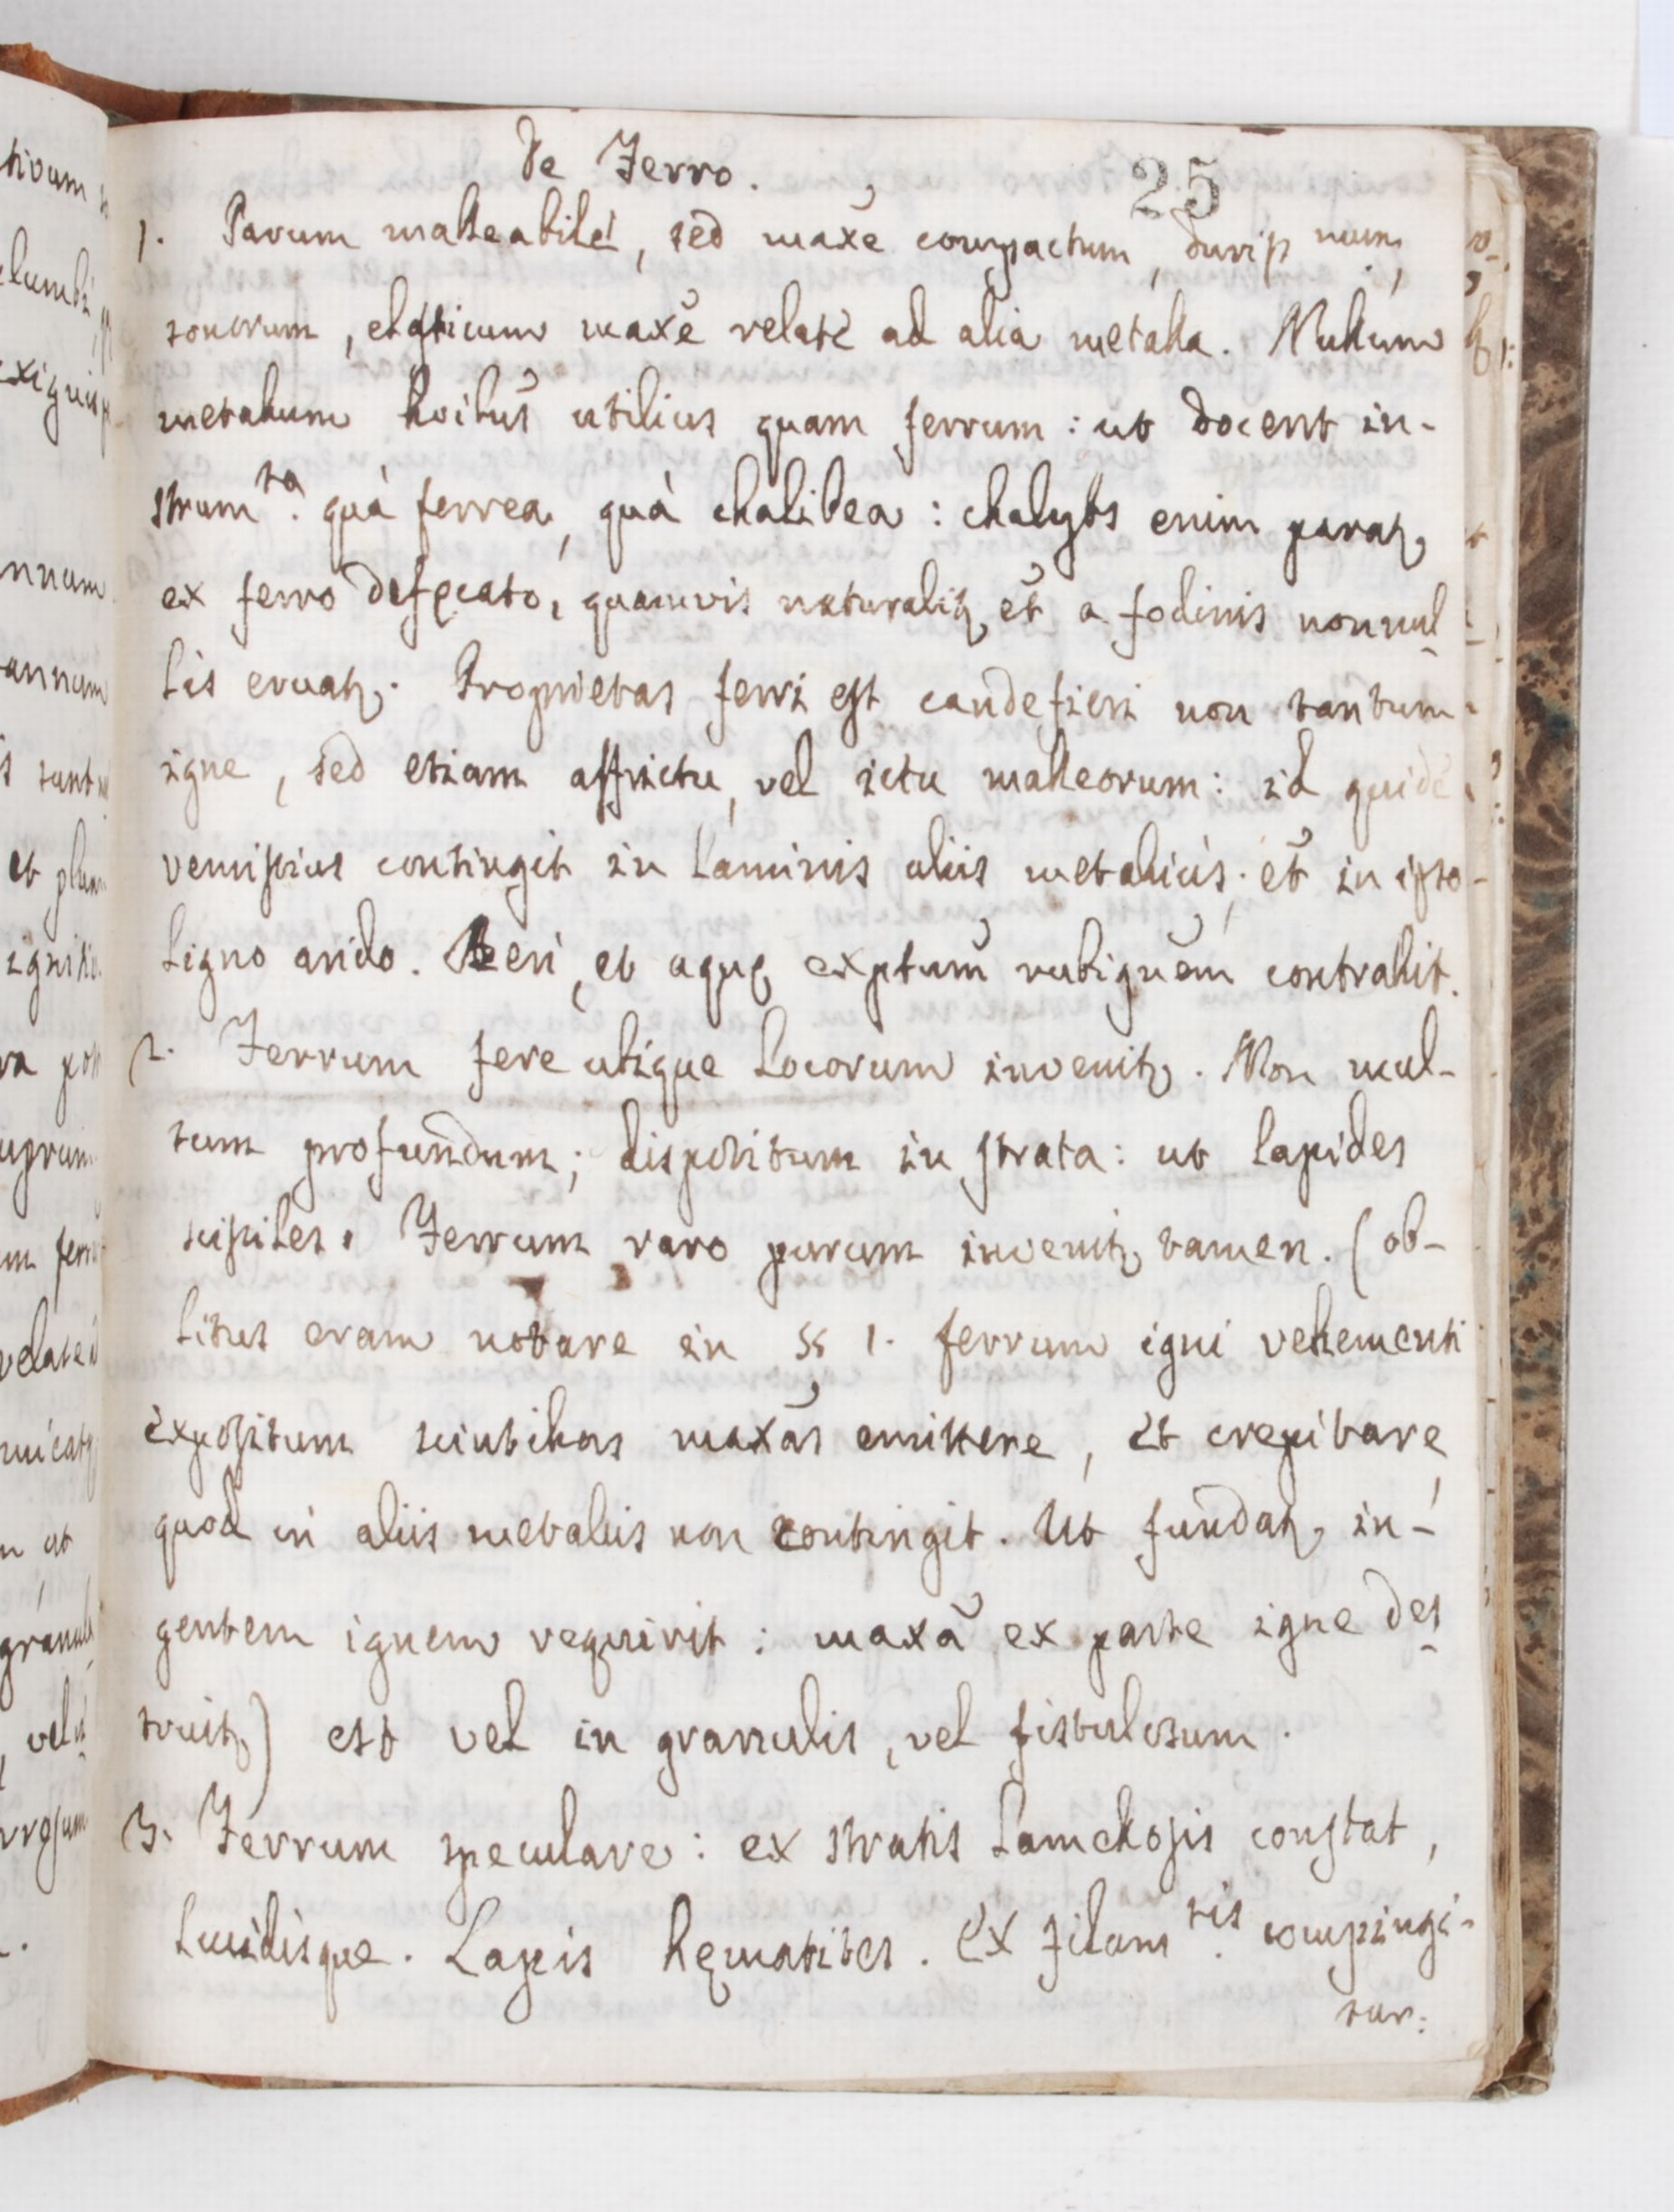 De Ferro.
25
1. Parum malleabile, sed maxe compactum, durissimum,
sonorum, elasticum maxe relate ad alia metalla. Nullum
metallum hoibus utilius quam ferrum: ut docent in-
strumta. quà ferrea, quà chalibea: chalybs enim paratz
ex ferro defecato, quamvis naturalitz et a fodinis nonnul
lis eruatz. Proprietas ferri est candefieri non tantum
igne, sed etiam affrictu, vel ictu malleorum: id quidē
remissius contingit in laminis aliis metalicis; et in ipso
ligno arido. Aeri, et aquę exptum rubiginem contrahit.
2. Ferrum fere ubique locorum invenitz. Non mul-
tum profundum; dispositum in strata: ut lapides
scissiles. Ferrum raro purum invenitz tamen. (ob-
litus eram notare in §§ 1. ferrum igni vehementi
expositum scintillas maxas emittere, et crepitare,
quod in aliis metallis non contingit. Ut fundatz, in-
gentem ignem requirit: maxa ex parte igne des
truitz) est vel in granulis, vel fistulosum.
3. Ferrum speculare: ex stratis lamellosis constat,
lucidisque. Lapis hęmatites. Ex filamtis. compingi-
tur: